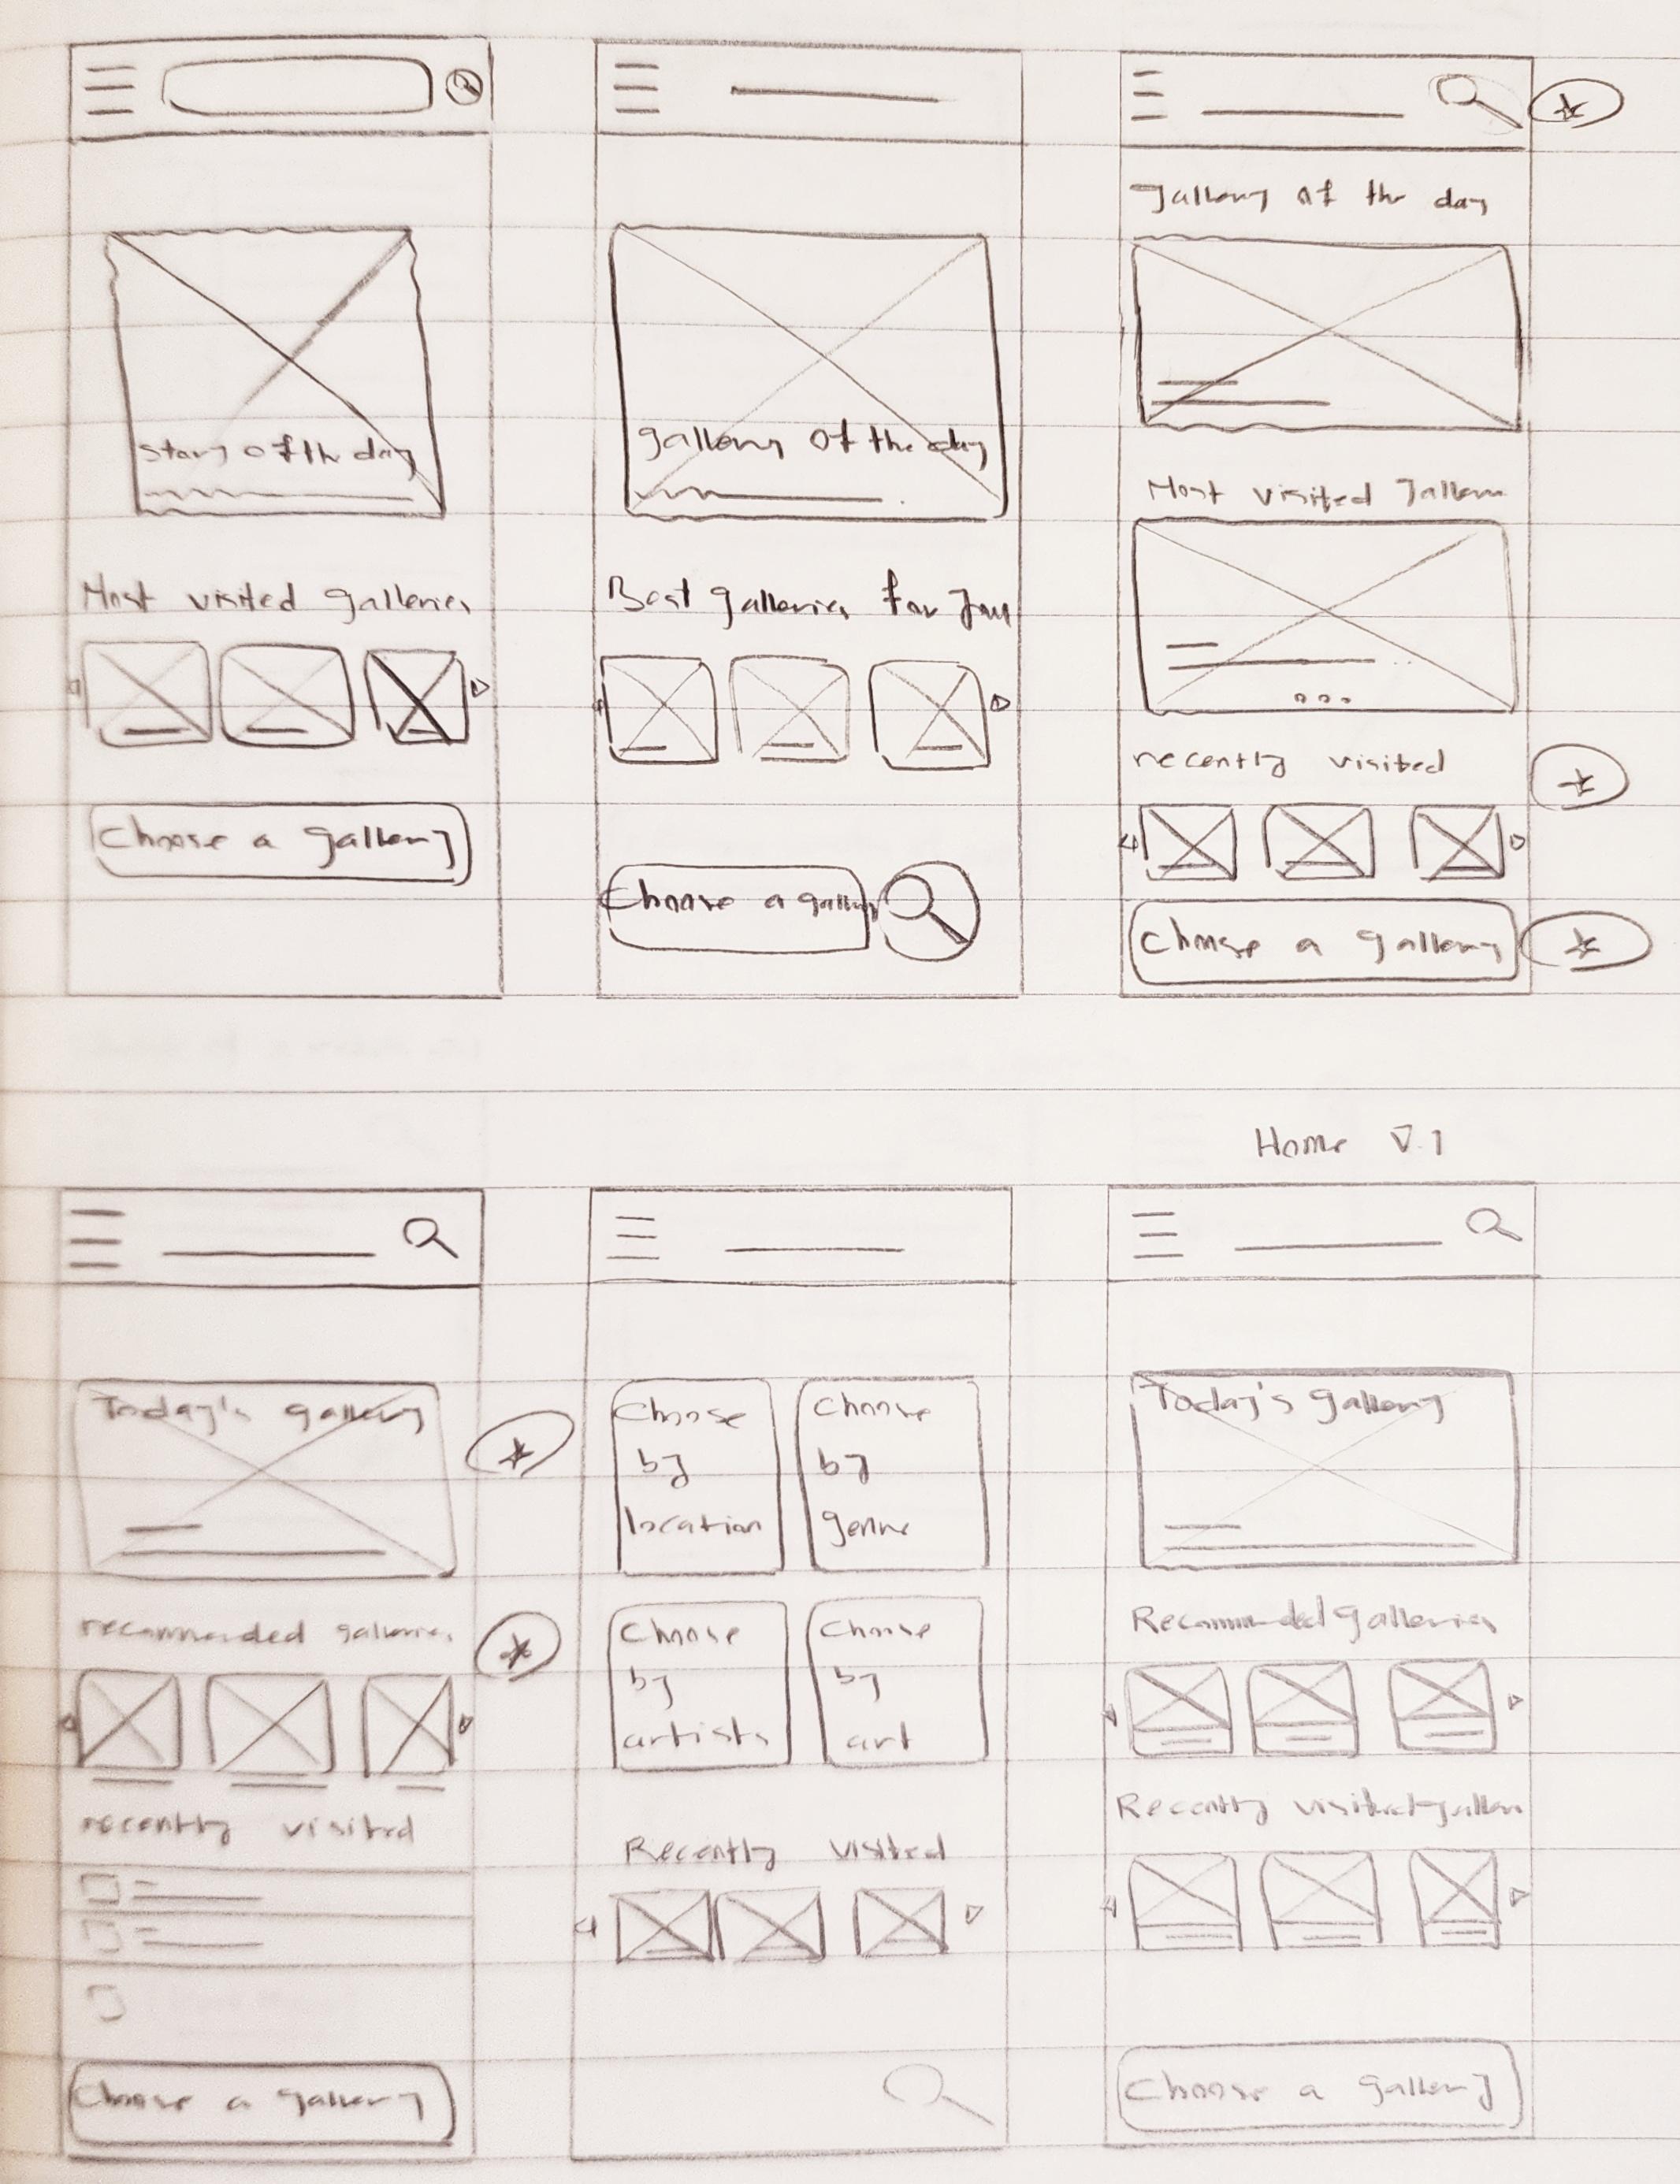 story of the day
Most visited galleries
Choose a gallery
gallery of the day
Best galleries for you
Choose a gallery
gallery of the day
Most visited gallery
recently visited
Choose a gallery
Home V.1
Today's gallery
recommended galleries
recently visited
Choose a gallery
Choose
by
location
Choose
by
genre
Choose
by
artists
Choose
by
art
Recently visited
Today's gallery
Recommended galleries
Recently visited gallery
Choose a gallery